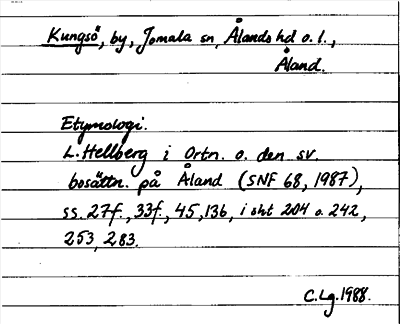 Kungsö, by, Jomala sn, Ålands hd o. l.,
Åland.
Etymologi.
L. Hellberg i Ortn. o. den sv.
bosättn. på Åland (SNF 68, 1987),
ss. 27f., 33f., 45, 136, i sht 204 o. 242,
253, 283.
C. Lg. 1988.